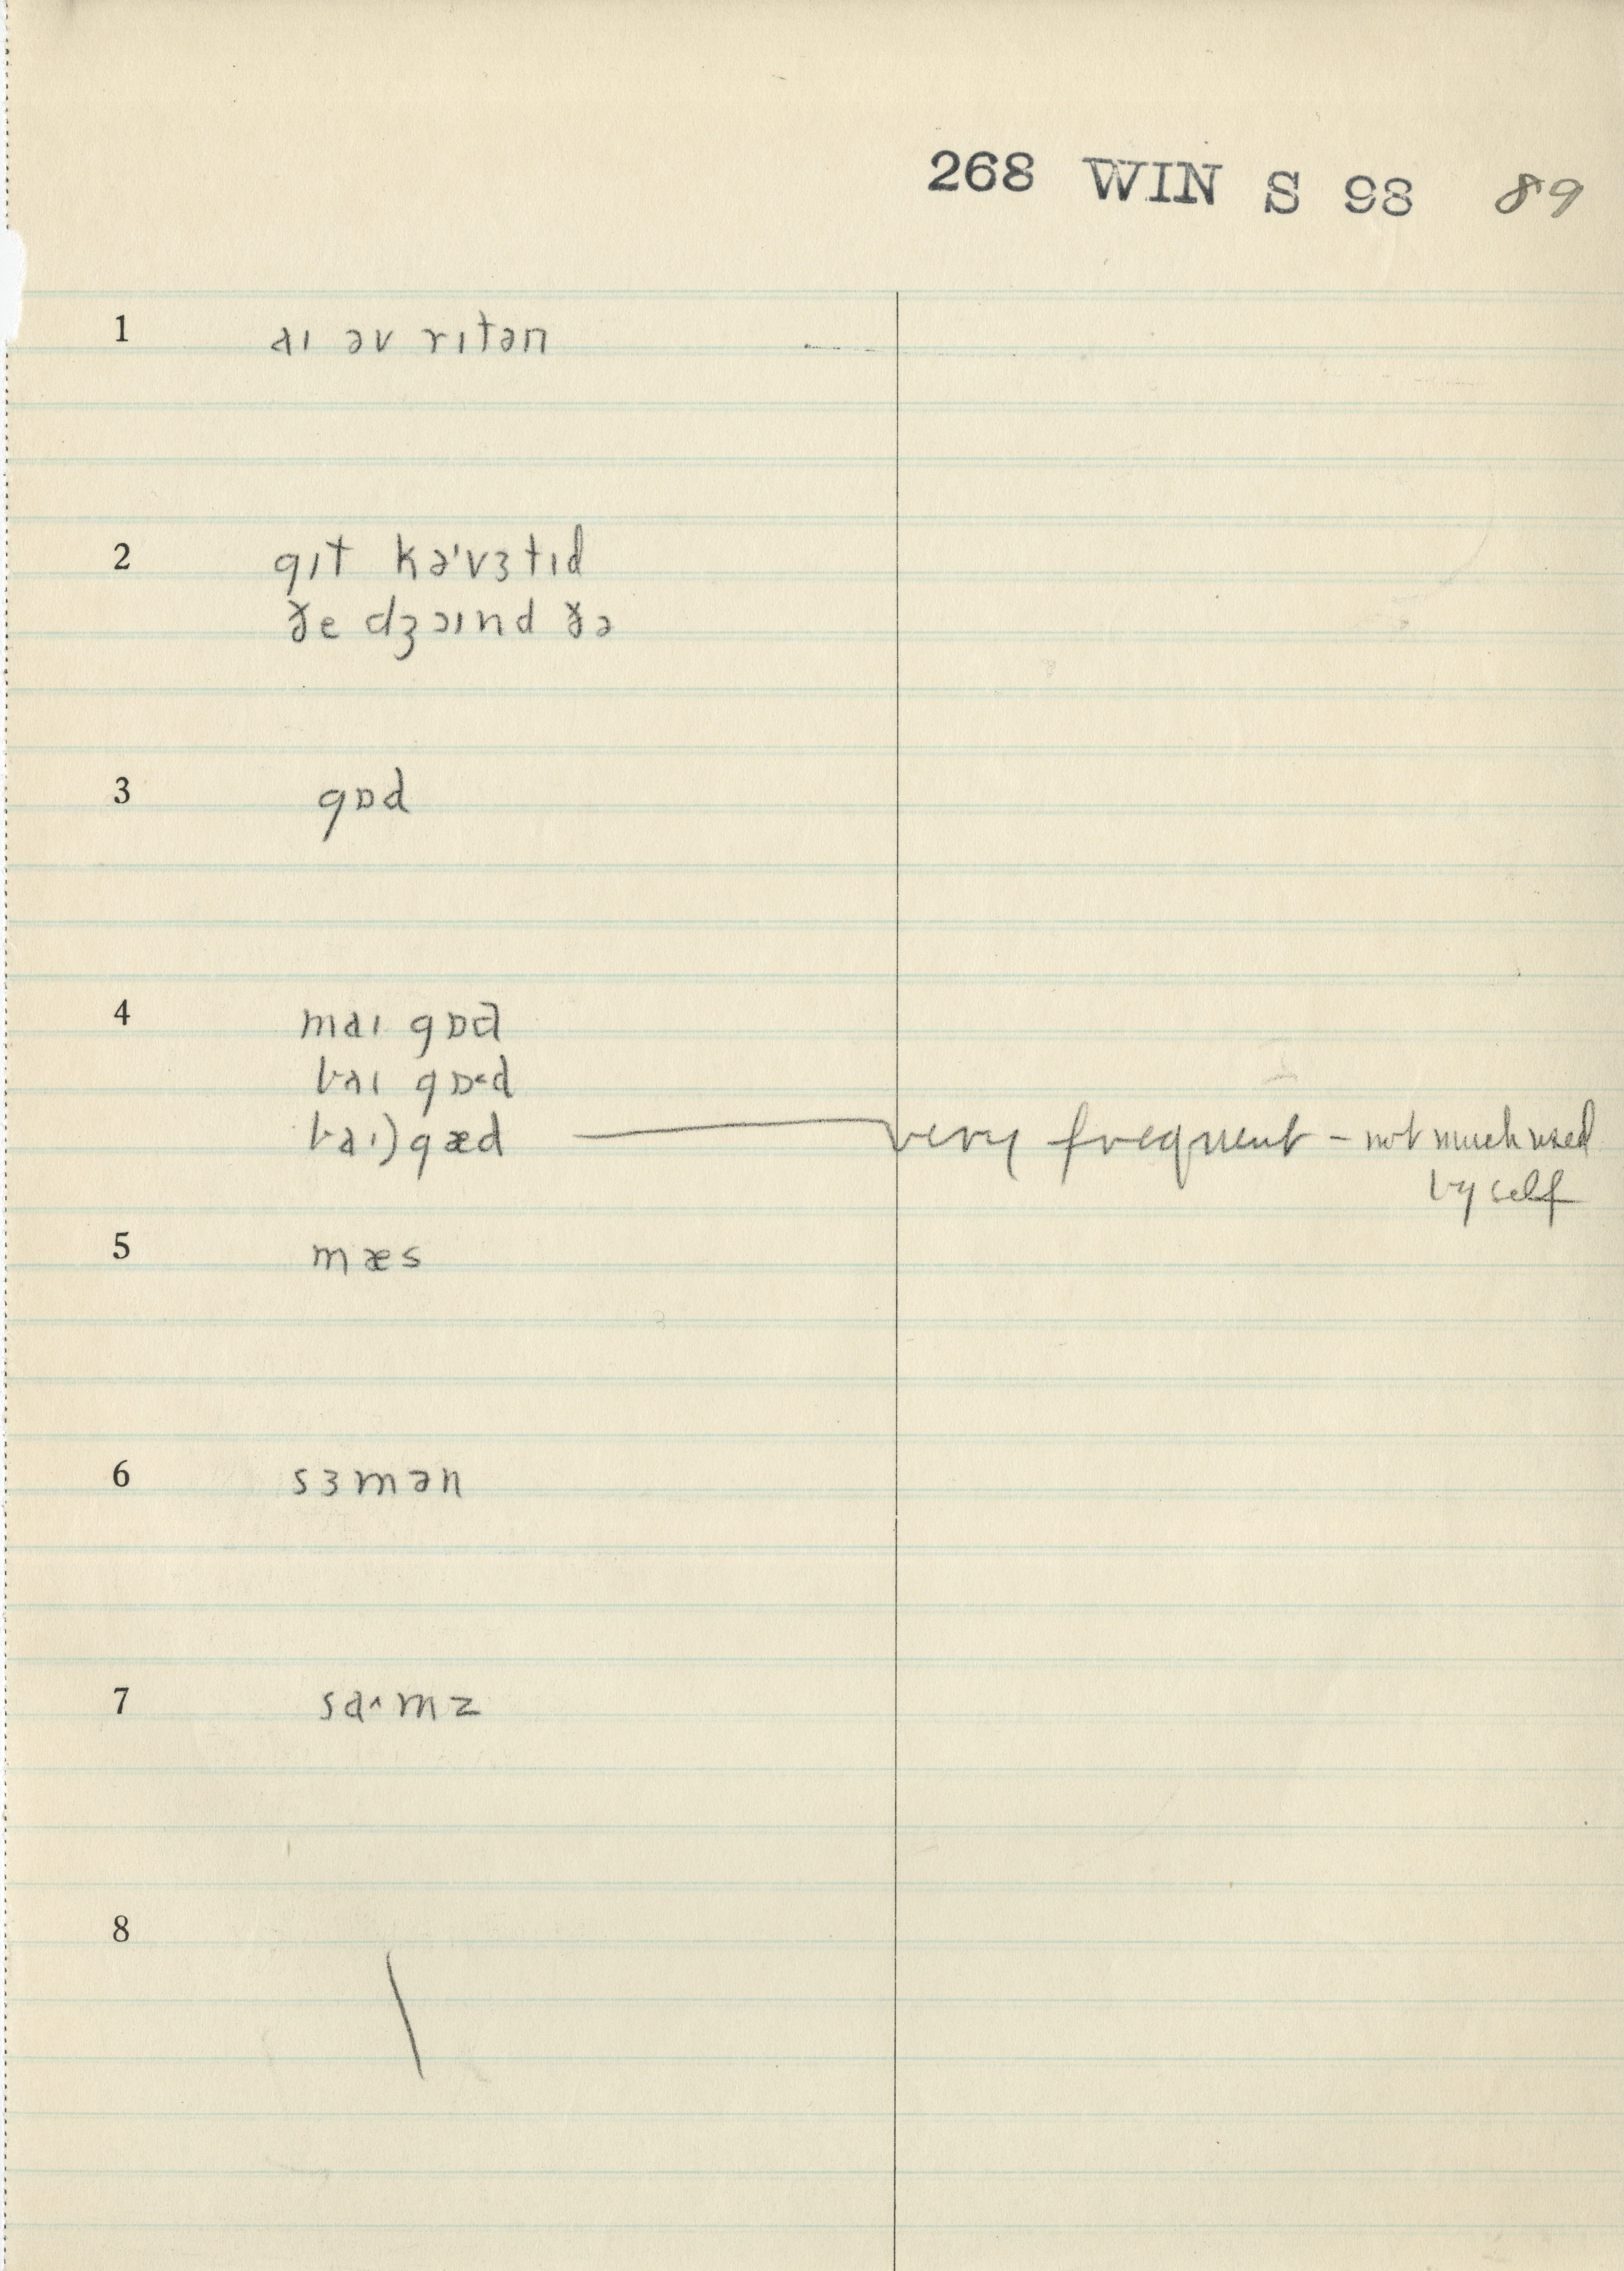 268 WIN S 98 89
1 aɪ əv rɪtən
2 gɪt kə'vɜtɪd
ðe dʒɔɪnd ðə
3 gɒd
4 maɪ gɒd
baɪ gɒ˞d
baɪ) gæd — very frequent – not much used
by self
5 mæs
6 sɜmən
7 sa˄mz
8 \